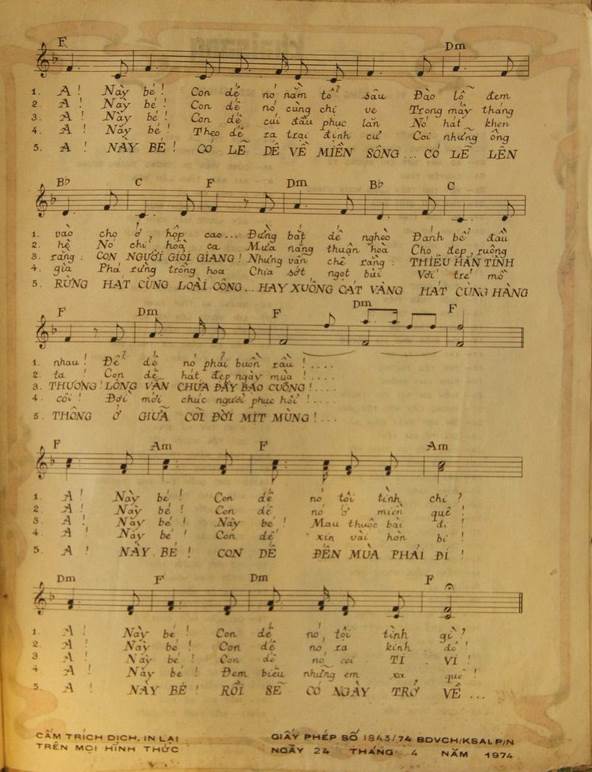 F Dm
1. A! Này bé! Con dế nó nằm tổ sâu Đào lỗ đem
2. A! Này bé! Con dế nó cũng chỉ ve Trong mấy tháng
3. A! Này bé! Con dế cúi đầu phục lăn Nó hát khen
4. A! Này bé! Theo dế ra trại định cư Coi những ông
5. A! NÀY BÉ! CÓ LẼ DẾ VỀ MIỀN SÔNG... CÓ LẼ LÊN
Bb C F Dm Bb C
1. vào chợ ở hộp cao... Đừng bắt dế nghèo Đánh bể đầu
2. hè Nó chỉ hoà ca Mưa nắng thuận hoà Cho đẹp ruộng
3. rằng: CON NGƯỜI GIỎI GIANG! Nhưng vẫn chê rằng: THIẾU HẲN TÌNH
4. già Phá rừng trồng hoa Chia sớt ngọt bùi Với trẻ mồ
5. RỪNG HÁT CÙNG LOÀI CÔNG... HAY XUỐNG CÁT VÀNG HÁT CÙNG HÀNG
F Am F Dm F
1. nhau! Để dế nó phải buồn rầu!....
2. ta! Con dế hát đẹp ngày mùa!....
3. THƯƠNG! LÒNG VẪN CHƯA ĐẦY BAO CUỒNG!....
4. côi! Đời mới chúc người phục hồi!....
5. THÔNG Ở GIỮA CÕI ĐỜI MÍT MÙNG!...
F Am F Am
1. A! Này bé! Con dế nó tội tình chi?
2. A! Này bé! Con dế nó ở miền quê!
3. A! Này bé! Này bé! Mau thuộc bài đi!
4. A! Này bé! Con dế xin vài hòn bi!
5. A! NÀY BÉ! CON DẾ ĐẾN MÙA PHẢI ĐI!
Dm F Dm F
1. A! Này bé! Con dế nó tội tình gì?
2. A! Này bé! Con dế nó ra kinh đô!
3. A! Này bé! Con dế nó coi TI VI!
4. A! Này bé! Đem biếu những em xa quê!
5. A! NÀY BÉ! RỒI SẼ CÓ NGÀY TRỞ VỀ...
CẤM TRÍCH DỊCH, IN LẠI
TRÊN MỌI HÌNH THỨC
GIẤY PHÉP SỐ 1843/74 BDVCH/KSALP/N
NGÀY 24 THÁNG 4 NĂM 1974